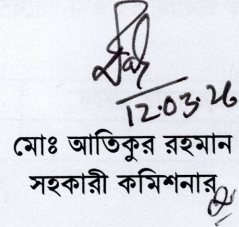 12.03.26
মোঃ আতিকুর রহমান
সহকারী কমিশনার